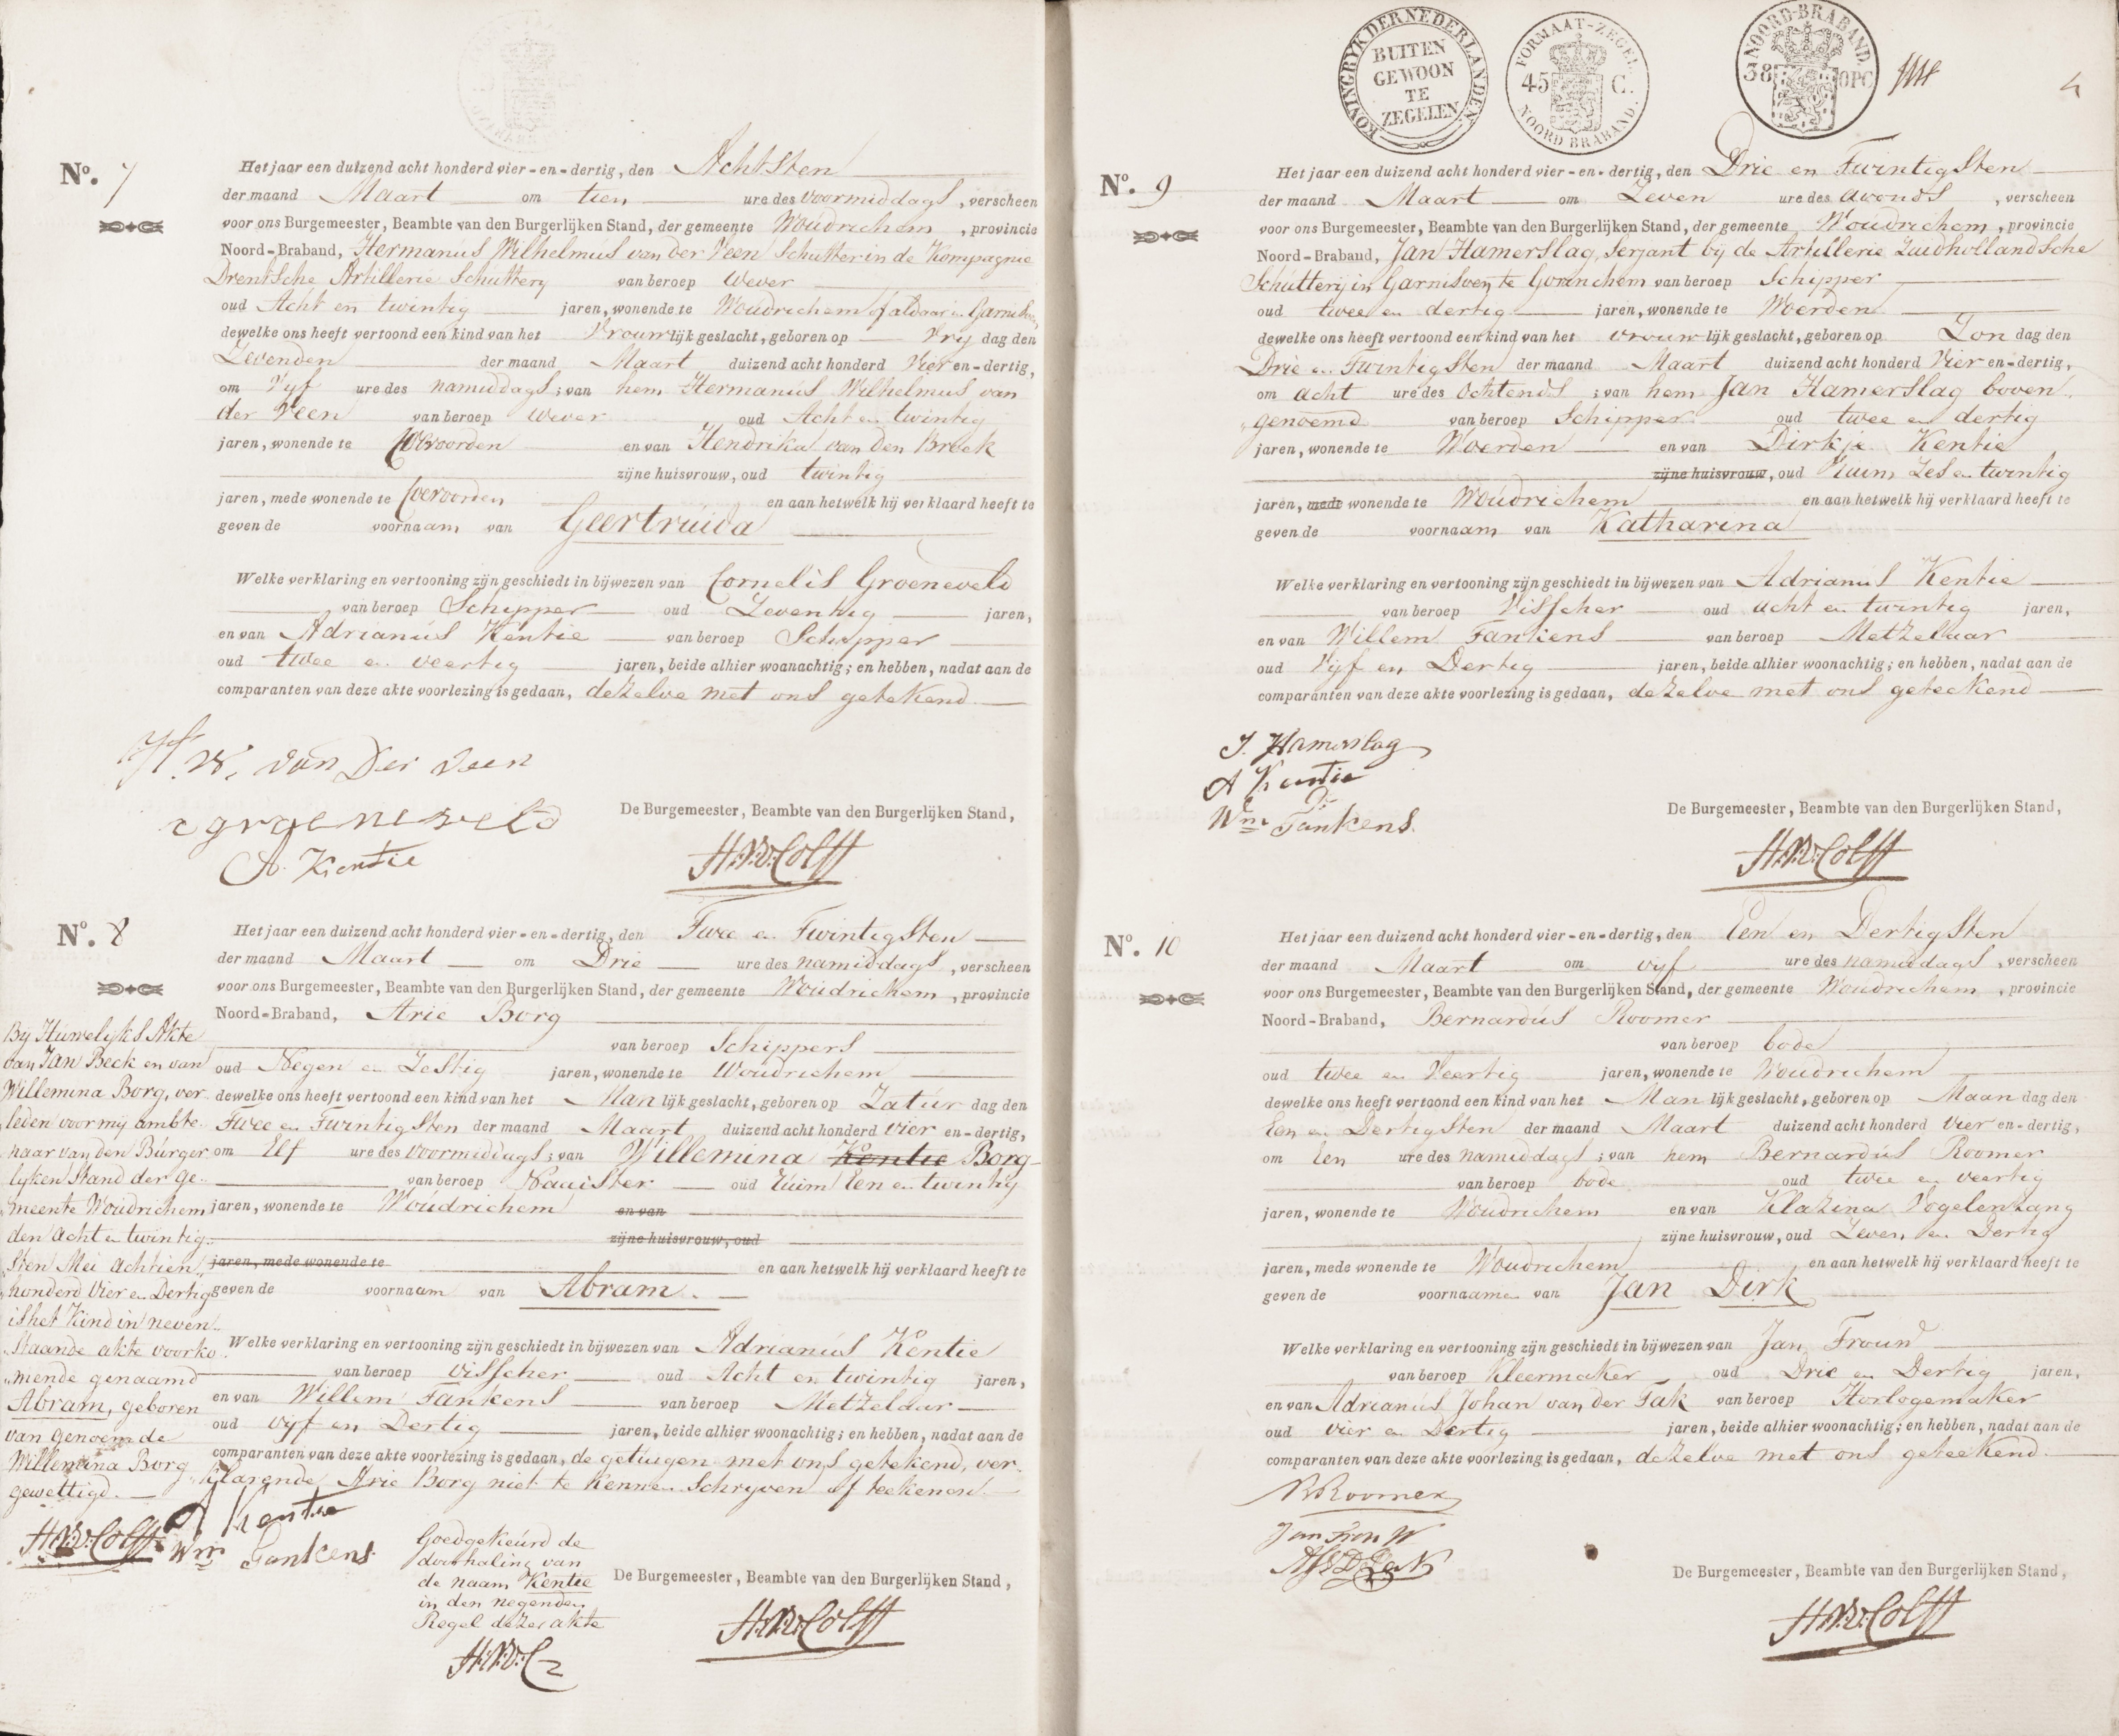 No. 7
Het jaar een duizend acht honderd vier-en-dertig, den Achtsten
der maand Maart om tien ure des voormiddags, verscheen
voor ons Burgemeester, Beambte van den Burgerlijken Stand, der gemeente Woudrichem, provincie
Noord-Braband, Hermanus Wilhelmus van der Veen Schutter in de Kompagnie
Drentsche Artillerie Schuttery van beroep Wever
oud Acht en twintig jaren, wonende te Woudrichem of aldaar in Garnisoen
dewelke ons heeft vertoond een kind van het Vrouwlijk geslacht, geboren op Vry dag den
Zevenden der maand Maart duizend acht honderd Vier en-dertig,
om Vyf ure des namiddags; van hem Hermanus Wilhelmus van
der Veen van beroep Wever oud Acht en twintig
jaren, wonende te Coevoorden en van Hendrika van den Broek
zijne huisvrouw, oud twintig
jaren, mede wonende te Coevoorden en aan hetwelk hij verklaard heeft te
geven de voornaam van Geertruida
Welke verklaring en vertooning zijn geschiedt in bijwezen van Cornelis Groeneveld
van beroep Schipper oud Zeventig jaren,
en van Adrianus Kentie van beroep Schipper
oud twee en veertig jaren, beide alhier woonachtig; en hebben, nadat aan de
comparanten van deze akte voorlezing is gedaan, dezelve met ons getekend
H. W. van Der Veen
c groeneveld
A. Kentie
De Burgemeester, Beambte van den Burgerlijken Stand,
H.W.v.Colff
No. 8
Het jaar een duizend acht honderd vier-en-dertig, den Twee en Twintigsten
der maand Maart om Drie ure des namiddags, verscheen
voor ons Burgemeester, Beambte van den Burgerlijken Stand, der gemeente Woudrichem, provincie
Noord-Braband, Arie Borg
van beroep Schippers
oud Negen en Zestig jaren, wonende te Woudrichem
dewelke ons heeft vertoond een kind van het Man lijk geslacht, geboren op Zatur dag den
Twee en Twintigsten der maand Maart duizend acht honderd vier en-dertig,
om Elf ure des voormiddags; van Willemina Kentie Borg
van beroep Naaister oud Ruim Een en twintig
jaren, wonende te Woudrichem en van
zijne huisvrouw, oud
jaren, mede wonende te
en aan hetwelk hij verklaard heeft te
geven de voornaam van Abram.
Welke verklaring en vertooning zijn geschiedt in bijwezen van Adrianus Kentie
van beroep Visscher oud Acht en twintig jaren,
en van Willem Tankens van beroep Metzelaar
oud vyf en Dertig jaren, beide alhier woonachtig; en hebben, nadat aan de
comparanten van deze akte voorlezing is gedaan, de getuigen met ons getekend, ver-
klarende Arie Borg niet te kennen Schryven of teekenen.
By Huwelyks Akte
van Jan Beck en van
Willemina Borg, ver-
leden voor my ambte-
naar van den Burger-
lyken Stand der Ge-
meente Woudrichem
den Acht en twintig-
sten Mei achtien
honderd Vier en Dertig
is het Kind in neven-
staande akte voorko-
mende genaamd
Abram, geboren
van genoemde
Willemina Borg
gewettigd.
H.W.v.Colff
A Kentie
Wm Tankens
Goedgekeurd de
doorhaling van
de naam Kentie
in den negenden
Regel dezer akte
H.W.v.C
De Burgemeester, Beambte van den Burgerlijken Stand,
H.W.v.Colff
KONINGRYK DER NEDERLANDEN
BUITEN
GEWOON
TE
ZEGELEN
FORMAAT-ZEGEL
45 C.
NOORD BRABAND.
NOORD-BRABAND
38 OPC
4
No. 9
Het jaar een duizend acht honderd vier-en-dertig, den Drie en Twintigsten
der maand Maart om Zeven ure des avonds, verscheen
voor ons Burgemeester, Beambte van den Burgerlijken Stand, der gemeente Woudrichem, provincie
Noord-Braband, Jan Hamerslag, Serjant bij de Artillerie Zuidhollandsche
Schuttery in Garnisoen te Gorinchem van beroep Schipper
oud twee en dertig jaren, wonende te Woerden
dewelke ons heeft vertoond een kind van het vrouw lijk geslacht, geboren op Zon dag den
Drie en Twintigsten der maand Maart duizend acht honderd Vier en-dertig,
om acht ure des Ochtends; van hem Jan Hamerslag boven
genoemd van beroep Schipper oud twee en dertig
jaren, wonende te Woerden en van Dirkje Kentie
zijne huisvrouw, oud Ruim Zes en twintig
jaren, mede wonende te Woudrichem en aan hetwelk hij verklaard heeft te
geven de voornaam van Katharina
Welke verklaring en vertooning zijn geschiedt in bijwezen van Adrianus Kentie
van beroep Visscher oud acht en twintig jaren,
en van Willem Tankens van beroep Metzelaar
oud Vyf en Dertig jaren, beide alhier woonachtig; en hebben, nadat aan de
comparanten van deze akte voorlezing is gedaan, dezelve met ons geteekend
J. Hamerslag
A Kentie
Wm Tankens.
De Burgemeester, Beambte van den Burgerlijken Stand,
H.W.v.Colff
No. 10
Het jaar een duizend acht honderd vier-en-dertig, den Een en Dertigsten
der maand Maart om vyf ure des namiddags, verscheen
voor ons Burgemeester, Beambte van den Burgerlijken Stand, der gemeente Woudrichem, provincie
Noord-Braband, Bernardus Roomer
van beroep bode
oud twee en Veertig jaren, wonende te Woudrichem
dewelke ons heeft vertoond een kind van het Man lijk geslacht, geboren op Maan dag den
Een en Dertigsten der maand Maart duizend acht honderd Vier en-dertig,
om Een ure des namiddags; van hem Bernardus Roomer
van beroep bode oud twee en veertig
jaren, wonende te Woudrichem en van Klazina Vogelenzang
zijne huisvrouw, oud Zeven en Dertig
jaren, mede wonende te Woudrichem en aan hetwelk hij verklaard heeft te
geven de voornamen van Jan Dirk
Welke verklaring en vertooning zijn geschiedt in bijwezen van Jan Frouw
van beroep Kleermaker oud Drie en Dertig jaren,
en van Adrianus Johan van der Tak van beroep Horlogemaker
oud Vier en Dertig jaren, beide alhier woonachtig; en hebben, nadat aan de
comparanten van deze akte voorlezing is gedaan, dezelve met ons geteekend.
B Roomer
Jan Frouw
De Burgemeester, Beambte van den Burgerlijken Stand,
H.W.v.Colff